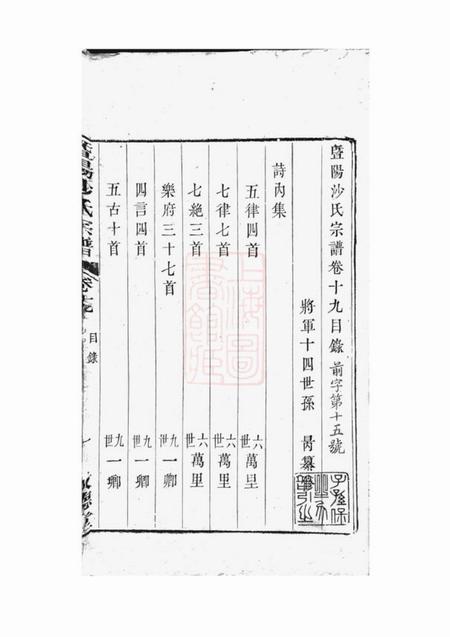 暨陽沙氏宗譜卷十九目錄 前字第十五號
將軍十四世孫 纂
詩內集
五律四首 六世萬里
七律七首 六世萬里
七絕三首 六世萬里
樂府三十七首 九世一卿
四言四首 九世一卿
五古十首 九世一卿
暨陽沙氏宗譜
目錄
上海圖書館藏